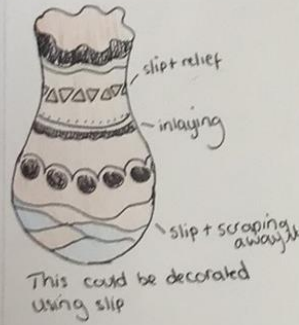 slip + relief
inlaying
slip + scraping
away
This could be decorated
using slip